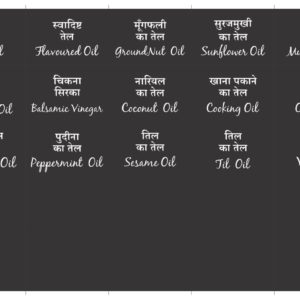 स्वादिष्ट
तेल
Flavoured Oil
मूँगफली
का तेल
GroundNut Oil
सुरजमुखी
का तेल
Sunflower Oil
Oil
चिकना
सिरका
Balsamic Vinegar
नारियल
का तेल
Coconut Oil
खाना पकाने
का तेल
Cooking Oil
Oil
पुदीना
का तेल
Peppermint Oil
तिल
का तेल
Sesame Oil
तिल
का तेल
Til Oil